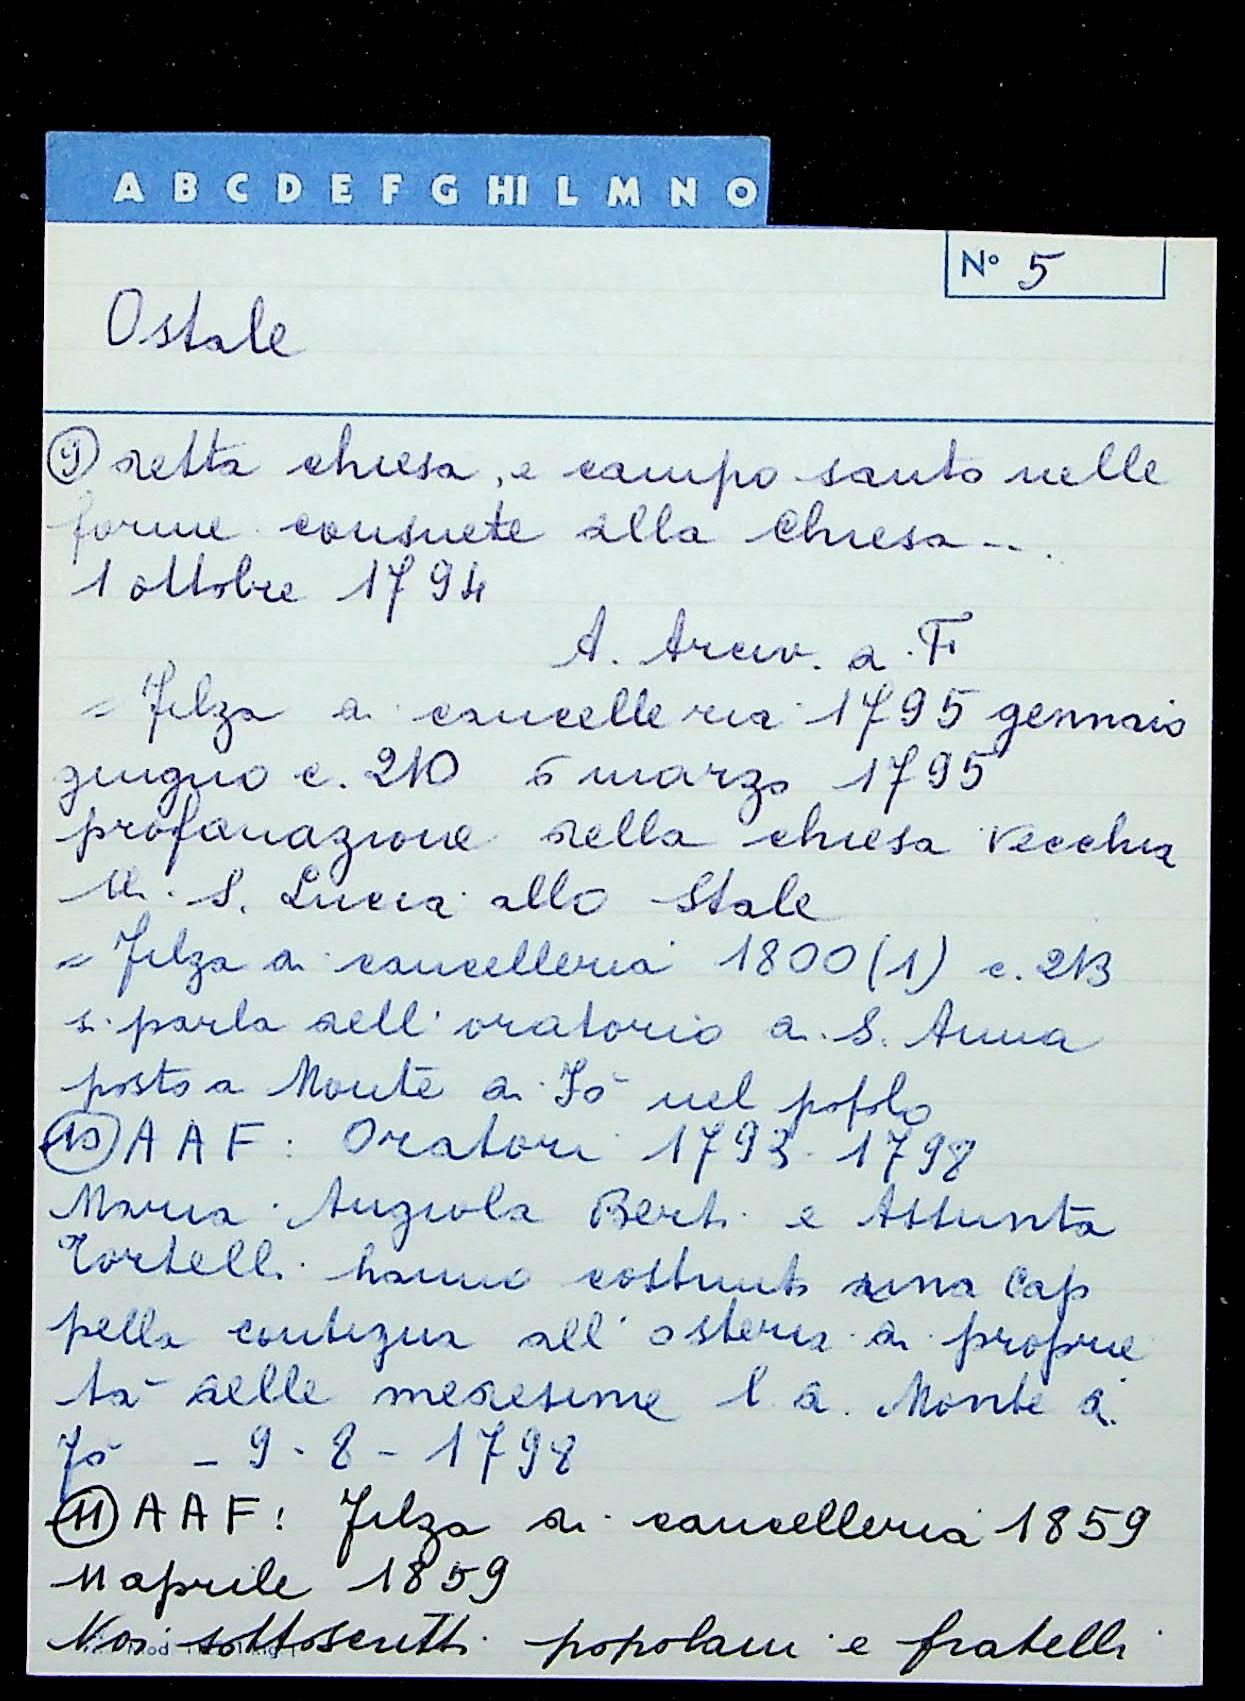 A B C D E F G HI L M N O
N° 5
Ostale
9 detta chiesa, e campo santo nelle
forme consuete alla Chiesa...
1 ottobre 1794
A. Arciv. di Fi
= Filza di cancelleria 1795 gennaio
giugno c. 210 6 marzo 1795
profanazione della chiesa vecchia
di S. Lucia allo Stale
= Filza di cancelleria 1800 (1) c. 213
si parla dell'oratorio di S. Anna
posto a Monte di Fò nel popolo
10 A A F: Oratori 1793-1798
Maria Angiola Berti e Assunta
Tortelli hanno costruito una Cap
pella contigua all'osteria di proprie
tà delle medesime l. d. Monte di
Fò - 9-8-1798
11 A A F: Filza di cancelleria 1859
11 aprile 1859
Noi sottoscritti popolani e fratelli